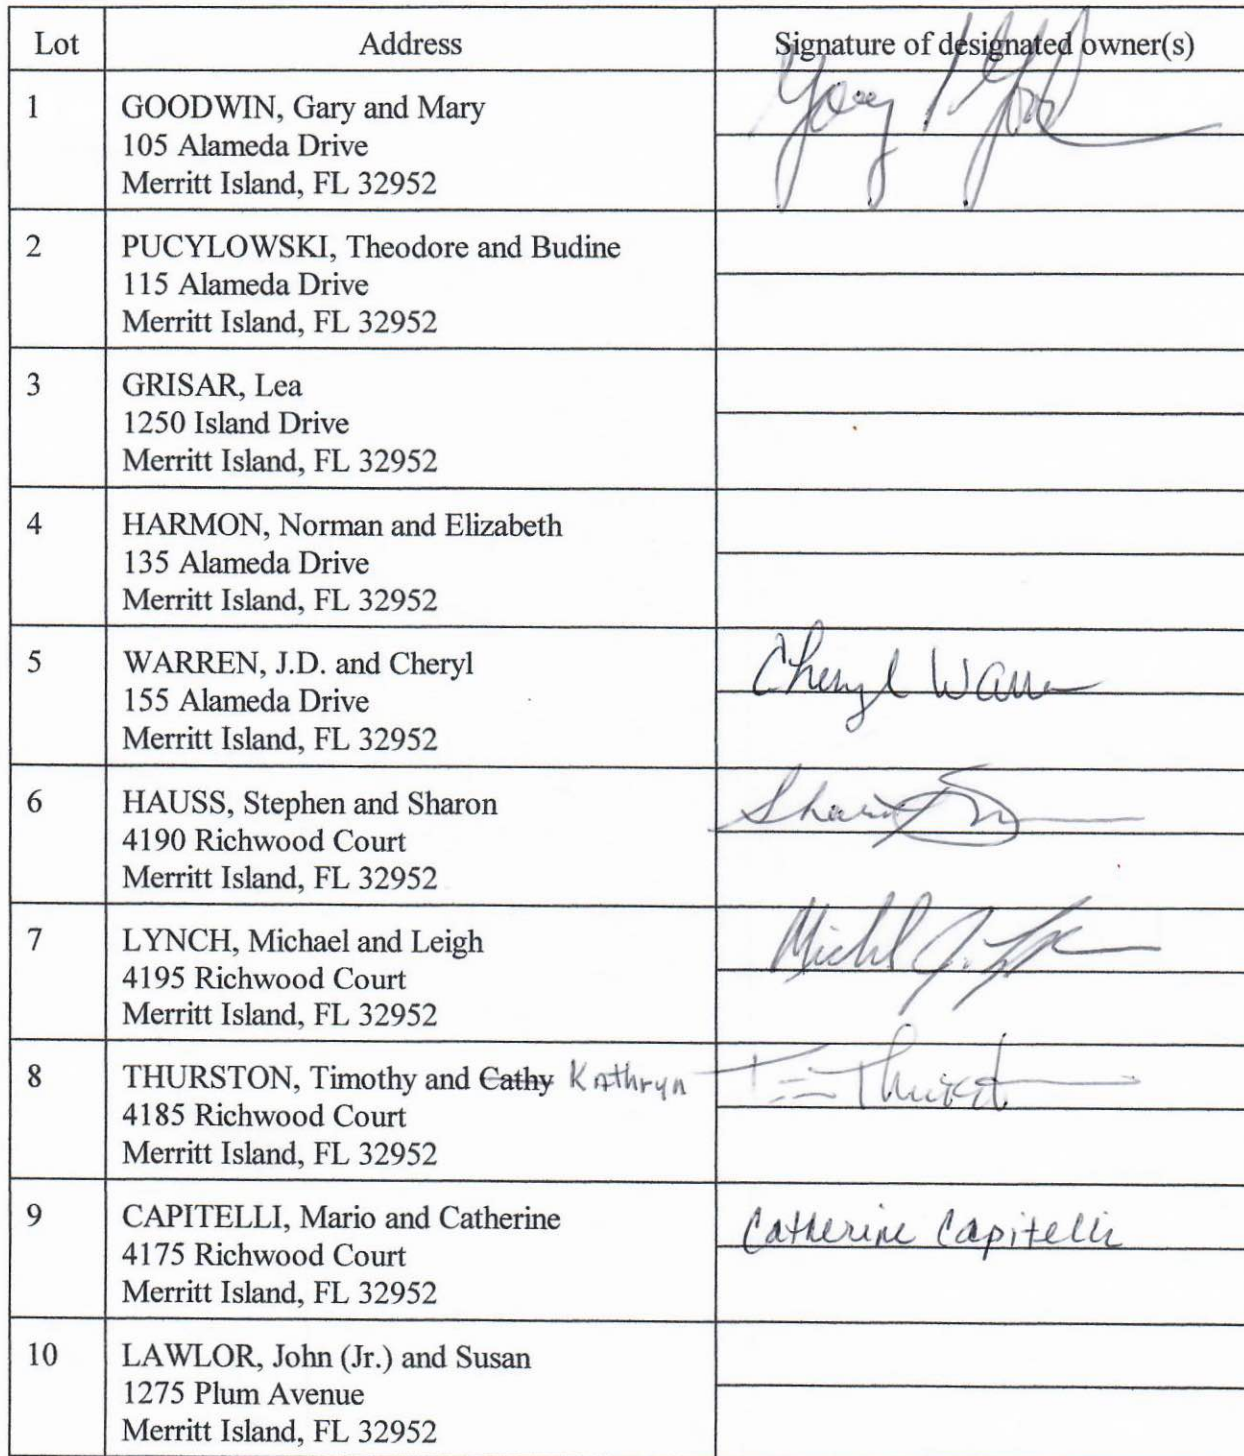 Lot Address Signature of designated owner(s)
1 GOODWIN, Gary and Mary
105 Alameda Drive
Merritt Island, FL 32952
2 PUCYLOWSKI, Theodore and Budine
115 Alameda Drive
Merritt Island, FL 32952
3 GRISAR, Lea
1250 Island Drive
Merritt Island, FL 32952
4 HARMON, Norman and Elizabeth
135 Alameda Drive
Merritt Island, FL 32952
5 WARREN, J.D. and Cheryl Cheryl Warren
155 Alameda Drive
Merritt Island, FL 32952
6 HAUSS, Stephen and Sharon Sharon
4190 Richwood Court
Merritt Island, FL 32952
7 LYNCH, Michael and Leigh Michael J. Lynch
4195 Richwood Court
Merritt Island, FL 32952
8 THURSTON, Timothy and Cathy Kathryn Tim Thurston
4185 Richwood Court
Merritt Island, FL 32952
9 CAPITELLI, Mario and Catherine Catherine Capitelli
4175 Richwood Court
Merritt Island, FL 32952
10 LAWLOR, John (Jr.) and Susan
1275 Plum Avenue
Merritt Island, FL 32952